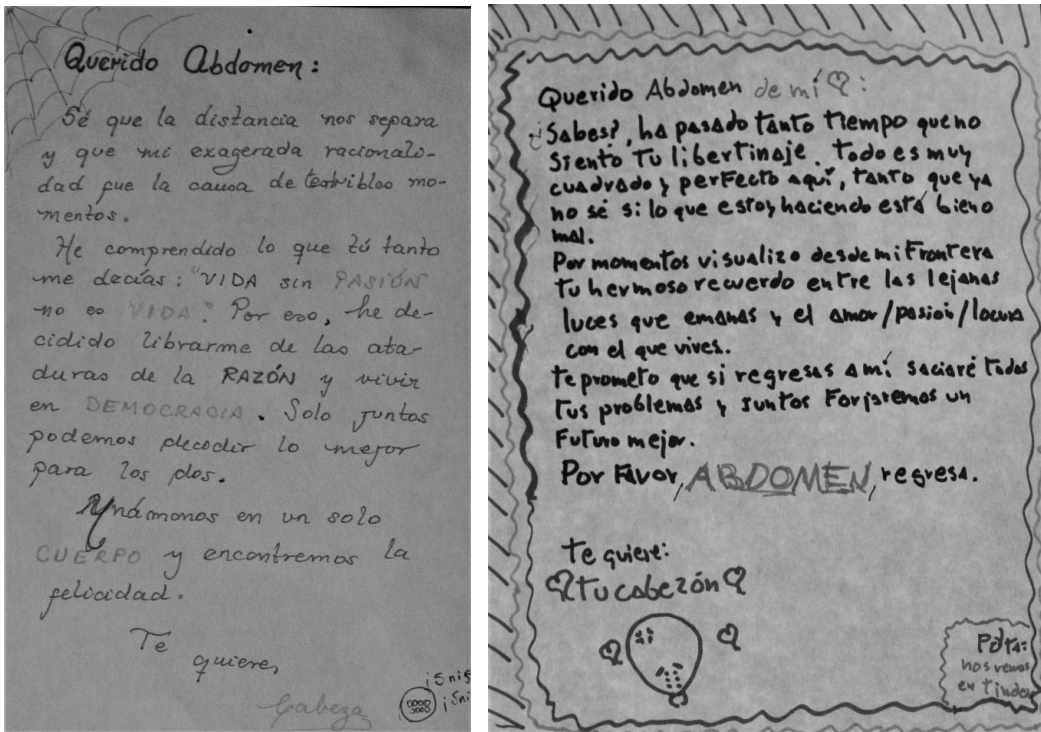 Querido Abdomen:
Sé que la distancia nos separa
y que mi exagerada racionali-
dad fue la causa de terribles mo-
mentos.
He comprendido lo que tú tanto
me decías: "VIDA sin PASIÓN
no es VIDA". Por eso, he de-
cidido librarme de las ata-
duras de la RAZÓN y vivir
en DEMOCRACIA. Solo juntos
podemos decidir lo mejor
para los dos.
Unámonos en un solo
CUERPO y encontremos la
felicidad.
Te
quiere,
Cabeza
¡Snif
¡Sni
Querido Abdomen de mí:
¿Sabes?, ha pasado tanto tiempo que no
siento tu libertinaje. Todo es muy
cuadrado y perfecto aquí, tanto que ya
no sé si lo que estoy haciendo está bien o
mal.
Por momentos visualizo desde mi Frontera
tu hermoso recuerdo entre las lejanas
luces que emanas y el amor/pasión/locura
con el que vives.
te prometo que si regresas a mí saciaré todos
tus problemas y juntos Forjaremos un
Futuro mejor.
Por Favor, ABDOMEN, regresa.
te quiere:
tu cabezón
nos vemos
en tinder